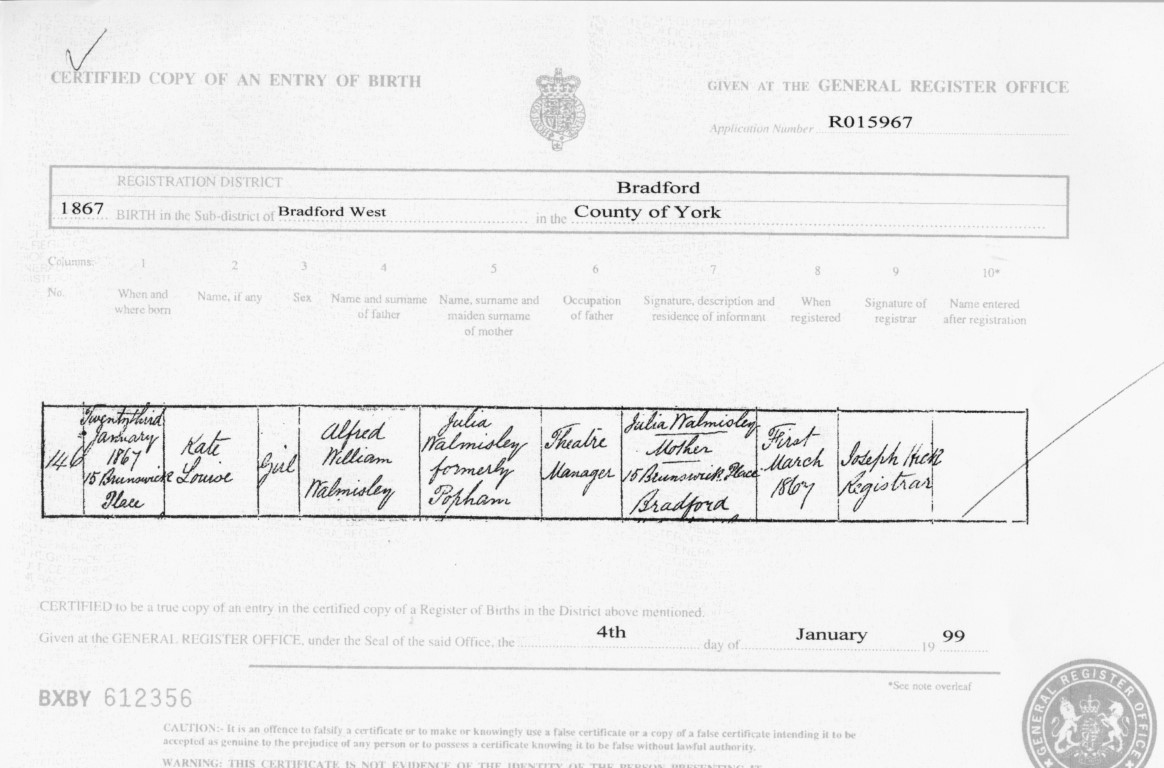 CERTIFIED COPY OF AN ENTRY OF BIRTH
GIVEN AT THE GENERAL REGISTER OFFICE
Application Number R015967
REGISTRATION DISTRICT Bradford
1867 BIRTH in the Sub-district of Bradford West in the County of York
Columns: 1 2 3 4 5 6 7 8 9 10*
No.
When and
where born
Name, if any
Sex
Name and surname
of father
Name, surname and
maiden surname
of mother
Occupation
of father
Signature, description and
residence of informant
When
registered
Signature of
registrar
Name entered
after registration
146
Twentythird
January
1867
15 Brunswick
Place
Kate
Louise
Girl
Alfred
William
Walmisley
Julia
Walmisley
formerly
Popham
Theatre
Manager
Julia Walmisley
Mother
15 Brunswick Place
Bradford
First
March
1867
Joseph Hick
Registrar
CERTIFIED to be a true copy of an entry in the certified copy of a Register of Births in the District above mentioned.
Given at the GENERAL REGISTER OFFICE, under the Seal of the said Office, the 4th day of January 19 99
*See note overleaf
BXBY 612356
CAUTION:- It is an offence to falsify a certificate or to make or knowingly use a false certificate or a copy of a false certificate intending it to be
accepted as genuine to the prejudice of any person or to possess a certificate knowing it to be false without lawful authority.
WARNING: THIS CERTIFICATE IS NOT EVIDENCE OF THE IDENTITY OF THE PERSON PRESENTING IT.
GENERAL REGISTER OFFICE